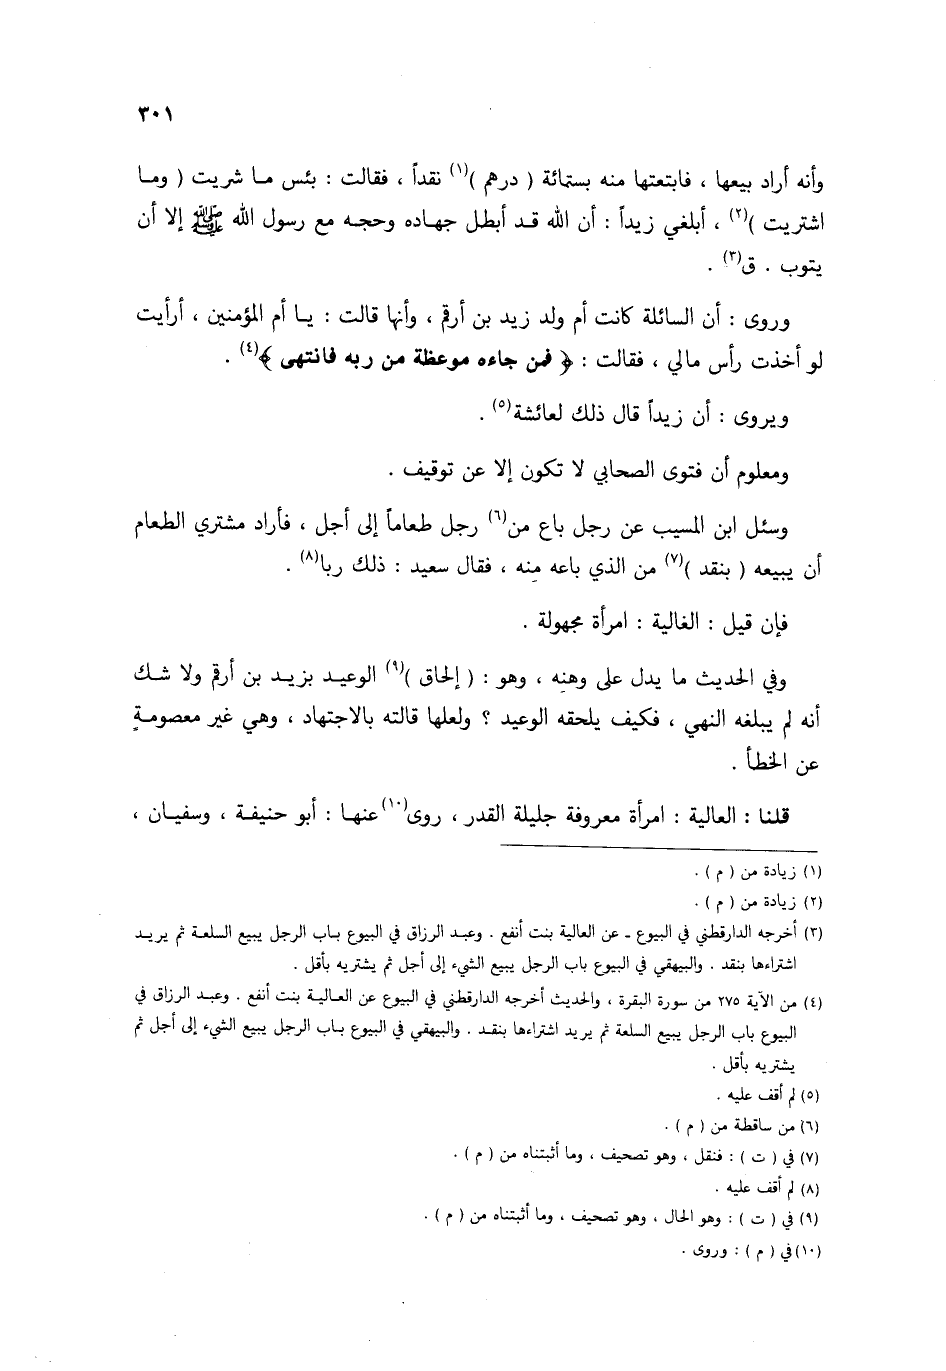 ٣٠١
وأنه أراد بيعها ، فابتعتها منه بستمائة ( درهم )(١) نقداً ، فقالت : بئس مـا شريت ( ومـا
اشتريت )(٢) ، أبلغي زيداً : أن الله قـد أبطـل جهـاده وحجـه مع رسول الله ﷺ إلا أن
يتوب . ق(٣) .
وروى : أن السائلة كانت أم ولد زيد بن أرقم ، وأنها قالت : يـا أم المؤمنين ، أرأيت
لو أخذت رأس مالي ، فقالت : ﴿ فمن جاءه موعظة من ربه فانتهى ﴾(٤) .
ويروى : أن زيداً قال ذلك لعائشة(٥) .
ومعلوم أن فتوى الصحابي لا تكون إلا عن توقيف .
وسئل ابن المسيب عن رجل باع من(٦) رجل طعاماً إلى أجل ، فأراد مشتري الطعام
أن يبيعه ( بنقد )(٧) من الذي باعه منه ، فقال سعيد : ذلك ربا(٨) .
فإن قيل : الغالية : امرأة مجهولة .
وفي الحديث ما يدل على وهنه ، وهو : ( إلحاق )(٩) الوعيـد بزيـد بن أرقم ولا شـك
أنه لم يبلغه النهي ، فكيف يلحقه الوعيد ؟ ولعلها قالته بالاجتهاد ، وهي غير معصومـةٍ
عن الخطأ .
قلنا : العالية : امرأة معروفة جليلة القدر ، روى(١٠)عنهـا : أبو حنيفـة ، وسفيـان ،
(١) زيادة من ( م ) .
(٢) زيادة من ( م ) .
(٣) أخرجه الدارقطني في البيوع ـ عن العالية بنت أنفع . وعبـد الرزاق في البيوع بـاب الرجل يبيع السلعـة ثم يريـد
اشتراءها بنقد . والبيهقي في البيوع باب الرجل يبيع الشيء إلى أجل ثم يشتريه بأقل .
(٤) من الآية ٢٧٥ من سورة البقرة ، والحديث أخرجه الدارقطني في البيوع عن العـاليـة بنت أنفع . وعبـد الرزاق في
البيوع باب الرجل يبيع السلعة ثم يريد اشتراءها بنقـد . والبيهقي في البيوع بـاب الرجل يبيع الشيء إلى أجل ثم
يشتريه بأقل .
(٥) لم أقف عليه .
(٦) من ساقطة من ( م ) .
(٧) في ( ت ) : فنقل ، وهو تصحيف ، وما أثبتناه من ( م ) .
(٨) لم أقف عليه .
(٩) في ( ت ) : وهو الحال ، وهو تصحيف ، وما أثبتناه من ( م ) .
(١٠) في ( م ) : وروى .